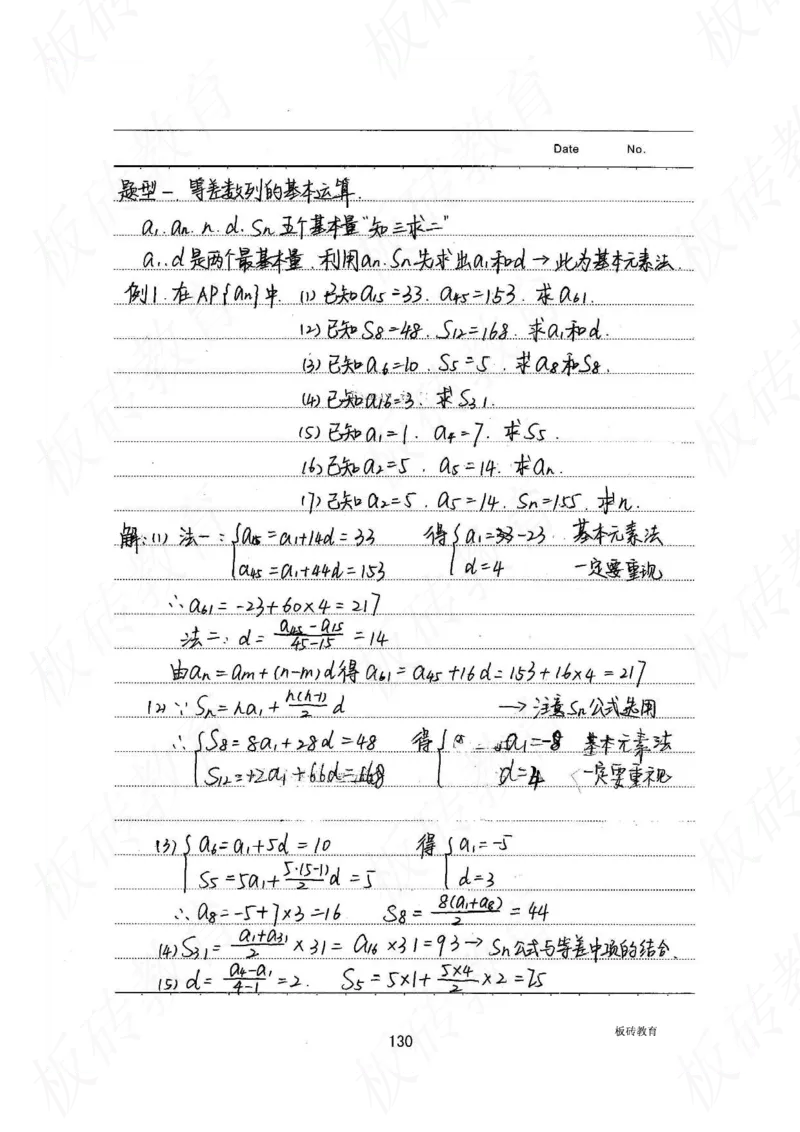 Date No.
题型一、等差数列的基本运算.
a₁. aₙ. n. d. Sₙ 五个基本量"知三求二"
a₁. d 是两个最基本量、利用aₙ. Sₙ先求出a₁和d → 此为基本元素法.
例1. 在AP{aₙ}中. (1) 已知a₁₅=33. a₄₅=153. 求a₆₁.
(2) 已知S₈=48. S₁₂=168. 求a₁和d.
(3) 已知a₆=10. S₅=5. 求a₈和S₈.
(4) 已知a₁₆=3. 求S₃₁.
(5) 已知a₁=1. a₄=7. 求S₅.
(6) 已知a₂=5. a₅=14. 求aₙ.
(7) 已知a₂=5. a₅=14. Sₙ=155. 求n.
解:(1) 法一: {a₁₅=a₁+14d=33 得{a₁=-23 基本元素法
a₄₅=a₁+44d=153 d=4 一定要重视
∴a₆₁=-23+60×4=217
法二: d=(a₄₅-a₁₅)/(45-15)=14
由aₙ=aₘ+(n-m)d得 a₆₁=a₄₅+16d=153+16×4=217
(2) ∵Sₙ=na₁+n(n-1)/2 d → 注意Sₙ公式选用
∴{S₈=8a₁+28d=48 得{a₁=-8 基本元素法
S₁₂=12a₁+66d=168 d=4 一定要重视
(3) {a₆=a₁+5d=10 得{a₁=-5
S₅=5a₁+5·(5-1)/2 d=5 d=3
∴a₈=-5+7×3=16 S₈=8(a₁+a₈)/2=44
(4) S₃₁=(a₁+a₃₁)/2×31=a₁₆×31=93→Sₙ公式与等差中项的结合.
(5) d=(a₄-a₁)/(4-1)=2. S₅=5×1+5×4/2×2=25
130
板砖教育